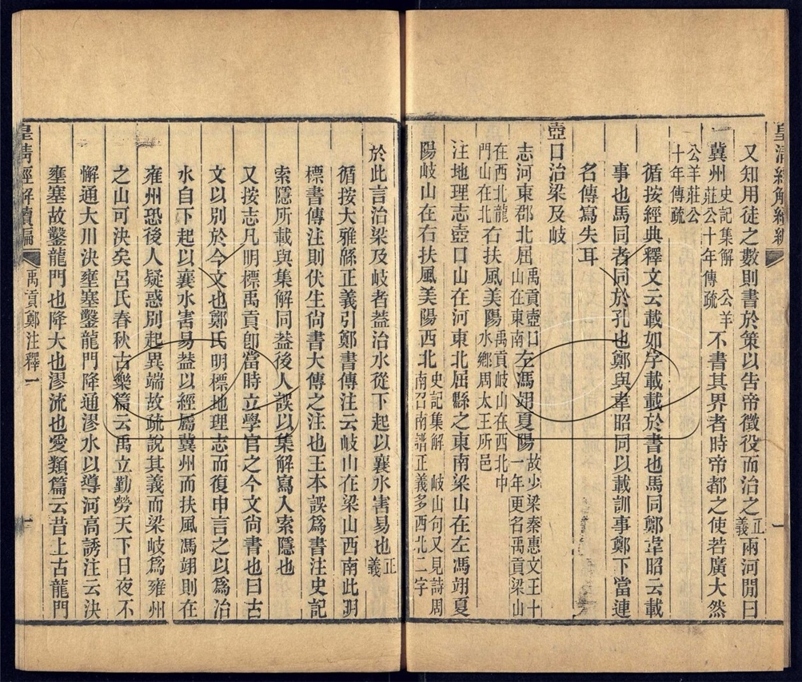 皇清經解續編
又知用徒之數則書於策以告帝徵役而治之正義兩河閒曰
冀州史記集解公羊莊公十年傳疏不書其界者時帝都之使若廣大然
公羊莊公十年傳疏
循按經典釋文云載如字載載於書也馬同鄭韋昭云載
事也馬同者同於孔也鄭與韋昭同以載訓事鄭下當連
名傳寫失耳
壺口治梁及岐
志河東郡北屈禹貢壺口山在東南左馮翊夏陽故少梁秦惠文王十一年更名禹貢梁山
在西北龍門山在北右扶風美陽禹貢岐山在西北中水鄉周太王所邑
注地理志壺口山在河東北屈縣之東南梁山在左馮翊夏
陽岐山在右扶風美陽西北史記集解岐山句又見詩周南召南譜正義多西北二字
於此言治梁及岐者葢治水從下起以襄水害易也正義
循按大雅緜正義引鄭書傳注云岐山在梁山西南此明
標書傳注則伏生尙書大傳之注也王本誤爲書注史記
索隱所載與集解同葢後人誤以集解寫入索隱也
又按志凡明標禹貢卽當時立學官之今文尙書也曰古
文以別於今文也鄭氏明標地理志而復申言之以爲治
水自下起以襄水害易葢以經屬冀州而扶風馮翊則在
雍州恐後人疑惑別起異端故疏說其義而梁岐爲雍州
之山可決矣呂氏春秋古樂篇云禹立勤勞天下日夜不
懈通大川決壅塞鑿龍門降通漻水以導河高誘注云決
壅塞故鑿龍門也降大也漻流也愛類篇云昔上古龍門
皇清經解續編
禹貢鄭注釋一